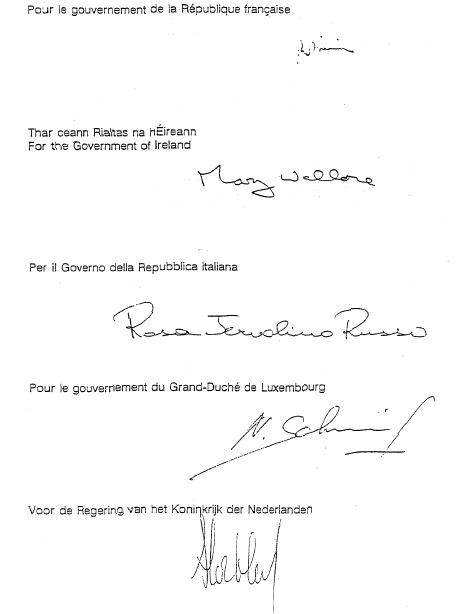 Pour le gouvernement de la République française
Thar ceann Rialtas na hÉireann
For the Government of Ireland
Mary Wallace
Per il Governo della Repubblica italiana
Rosa Jervolino Russo
Pour le gouvernement du Grand-Duché de Luxembourg
N. Schmit
Voor de Regering van het Koninkrijk der Nederlanden